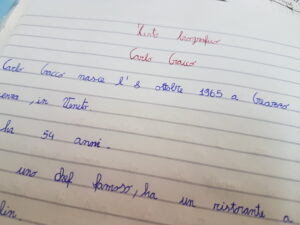 Testo biografico
Carlo Cracco
Carlo Cracco nasce l' 8 ottobre 1965 a Creazzo
, in Veneto.
ha 54 anni.
uno chef famoso, ha un ristorante a